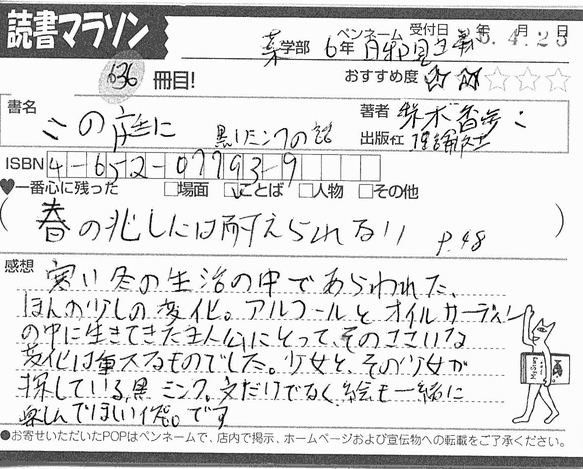 読書マラソン
薬学部 6年 ペンネーム 受付日 年 5.4.25 月 日
636 冊目!
おすすめ度 ☆☆☆☆☆
書名 この庭に 黒いミンクの話
著者 梨木香歩
出版社 理論社
ISBN 4-652-07793-9
♥一番心に残った □場面 ☑ことば □人物 □その他
(春の兆しには耐えられる!! P.48)
感想 寒い冬の生活の中であらわれた、
ほんの少しの変化。アルコールとオイルサーディン
の中に生きてきた主人公にとって、そのささいな
変化は重大なものでした。少女と、その少女が
探している黒ミンク。文だけでなく絵も一緒に
楽しんでほしい作品。です
●お寄せいただいたPOPはペンネームで、店内で掲示、ホームページおよび宣伝物への転載をご了承ください。